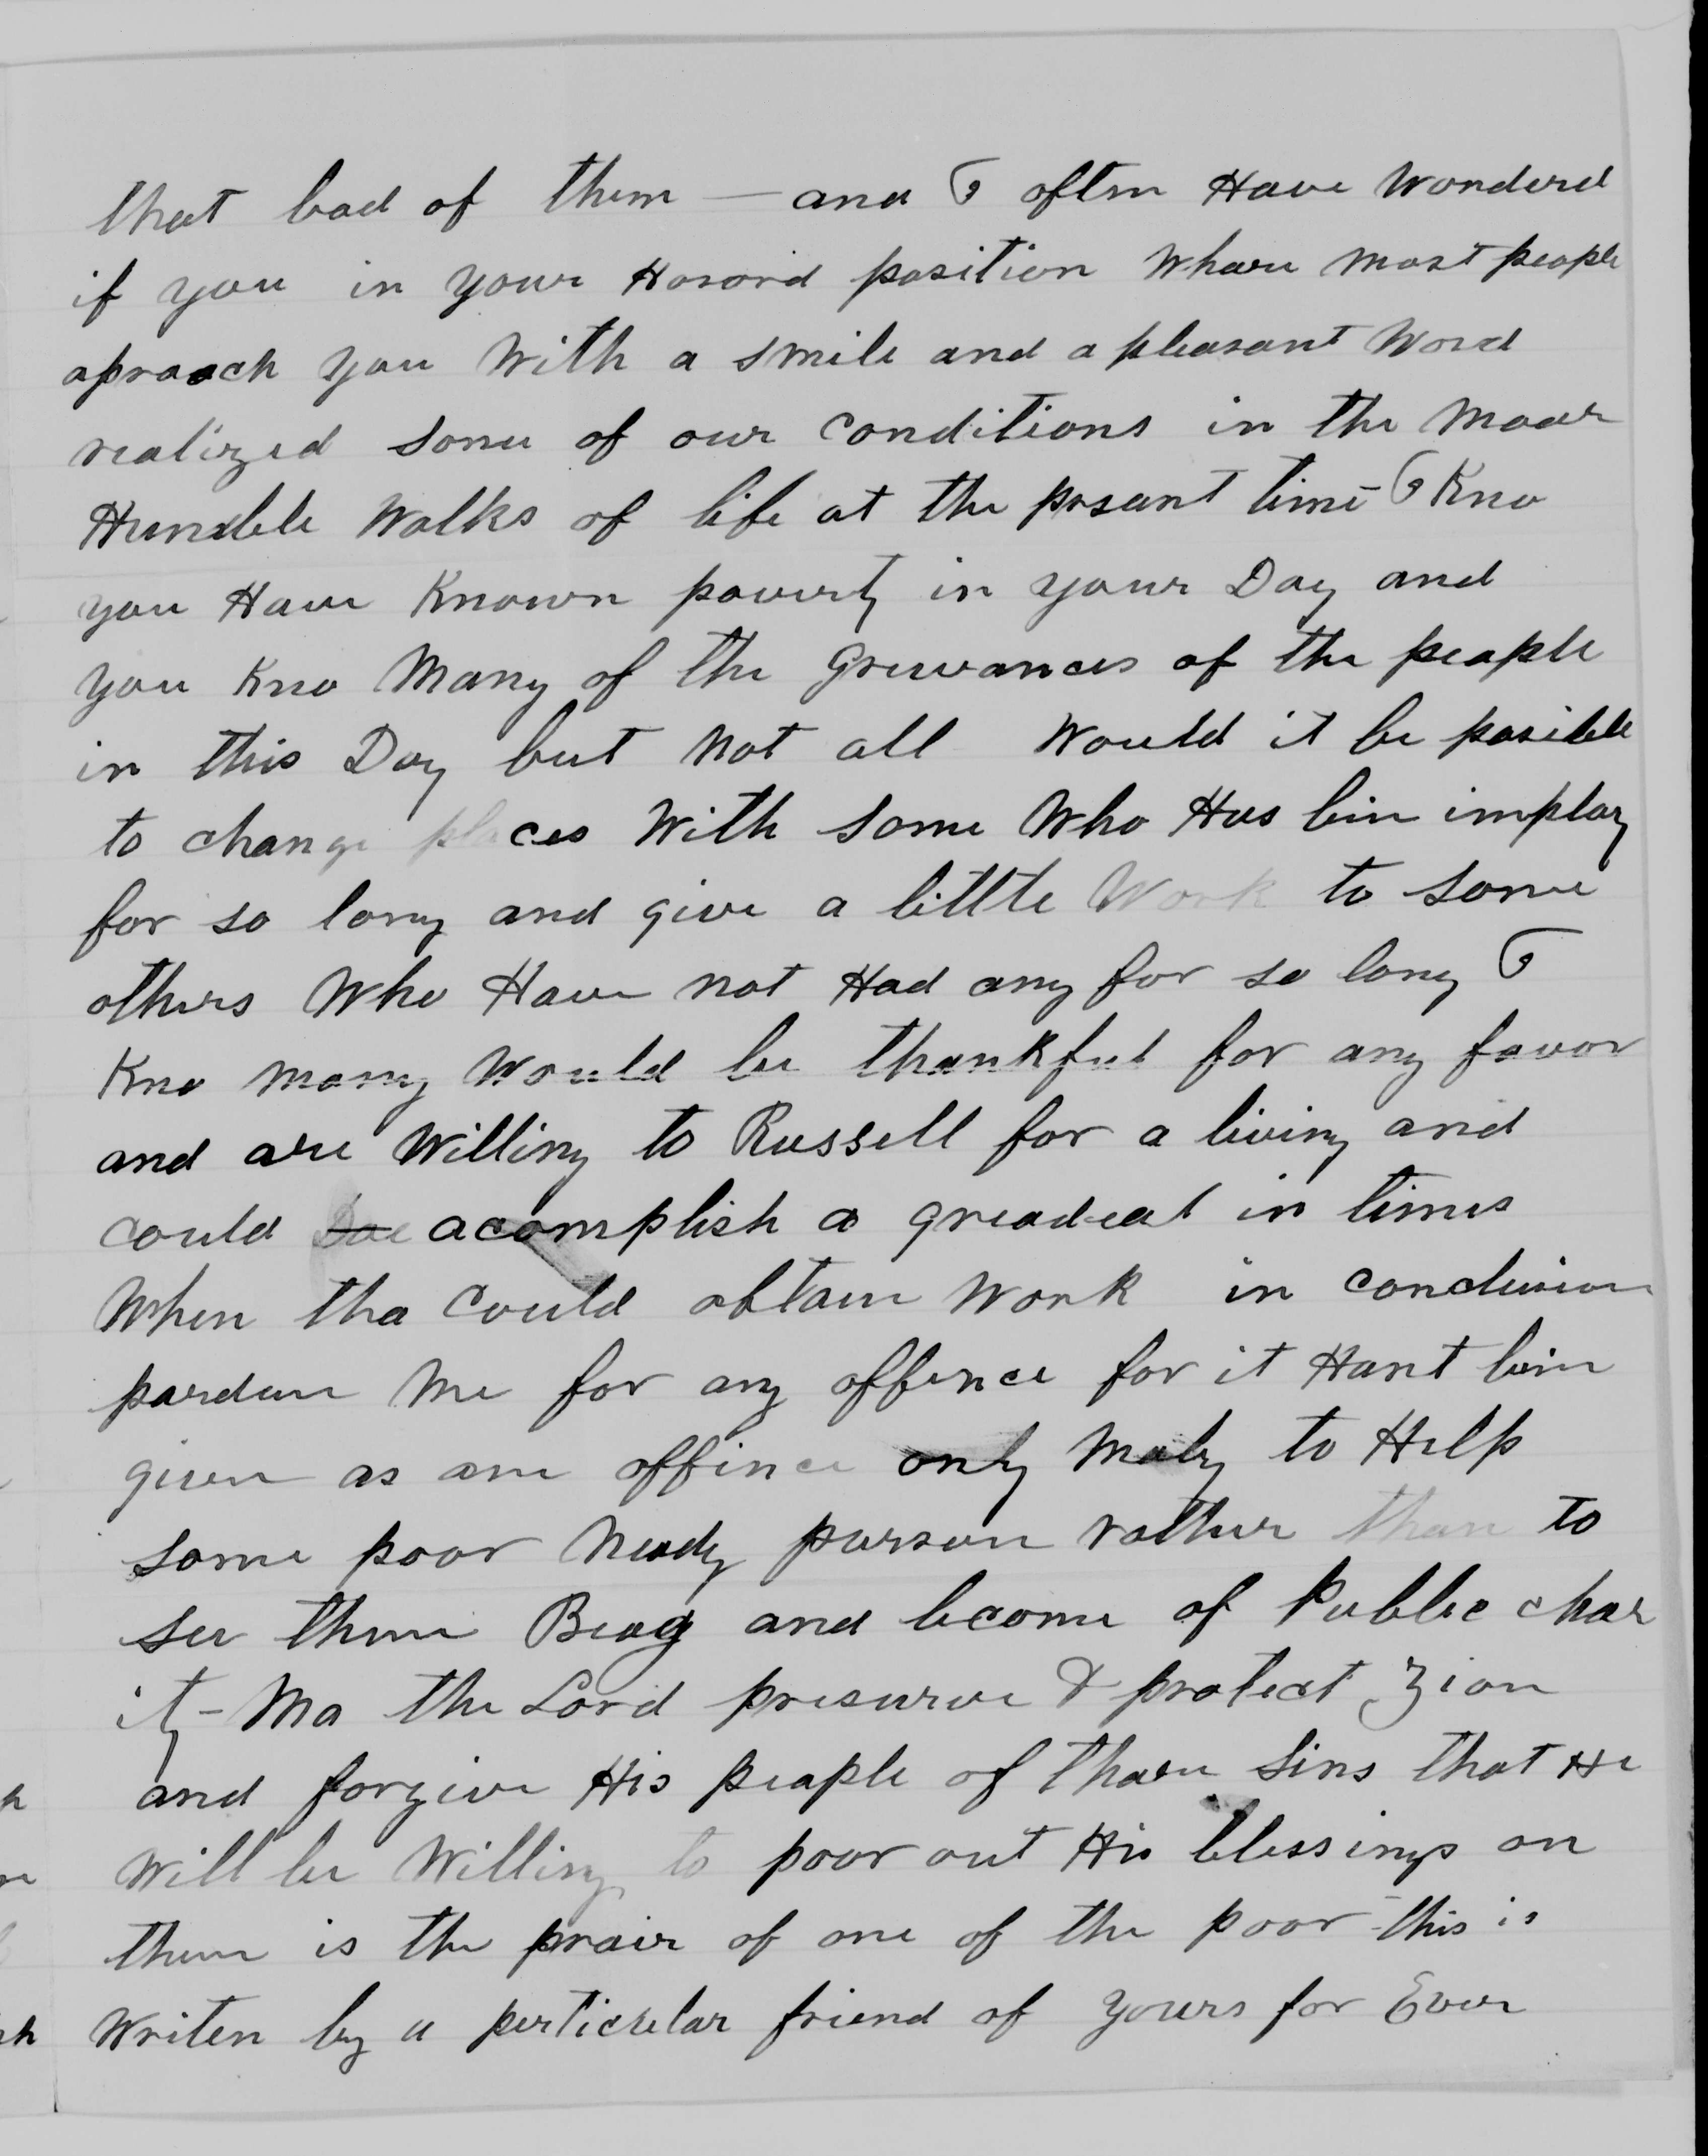 that bad of them — and I often Have Wonderd
if you in your Honord position Whare most people
aproach you With a smile and a pleasant Word
realized some of our Conditions in the Moar
Humble Walks of life at the prsant time - I Kno
you Have Known poverty in your Day and
you Kno Many of the Grievances of the people
in this Day but Not all Would it be posible
to change places With some Who Has bin imploy
for so long and give a little Work to some
others Who Have not Had any for so long I
Kno many Would be thankful for any favor
and are Willing to Russell for a living and
could Doe acomplish a greadeal in times
When tha Could obtain Work in conclusion
pardun Me for any offence for it Hant bin
given as an offince only Maly to Help
some poor Needy person rather than to
see them Beag and become of Public char
ity - Ma the Lord preserve & protect Zion
and forgive His people of thare Sins that He
Will be Willing to poor out His blessings on
them is the prair of one of the poor - this is
Writen by a perticular friend of yours for Ever